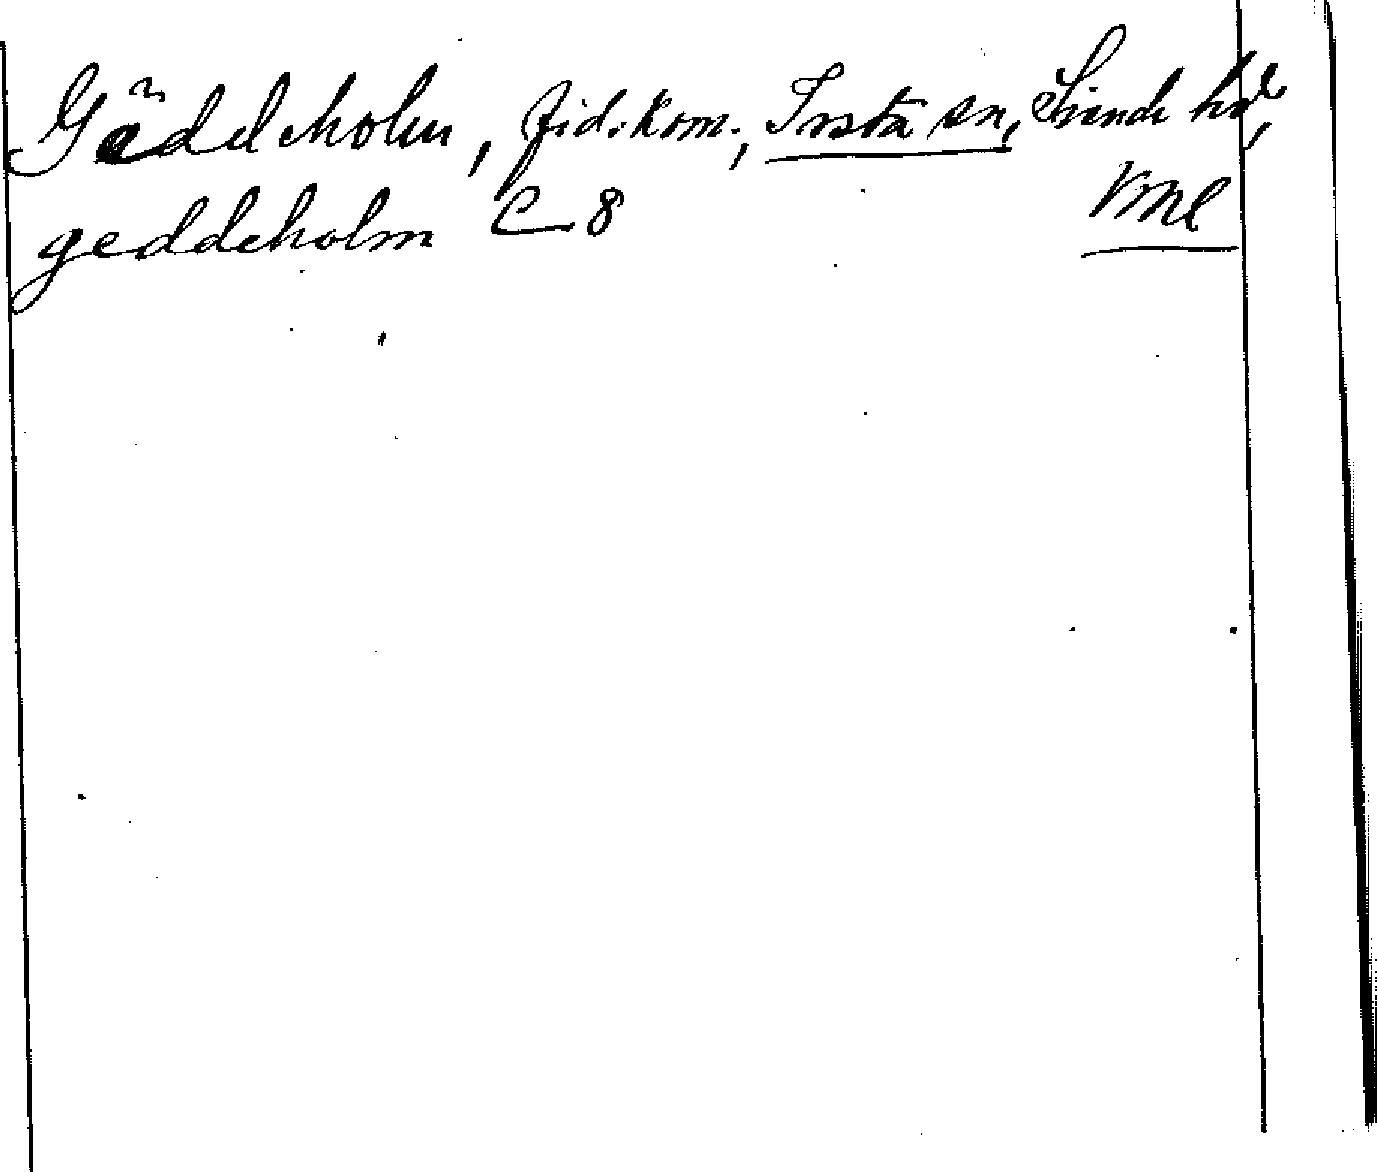 Gäddeholm, fid.kom., Irsta sn, Siende hd,
Vml
geddeholm C 8